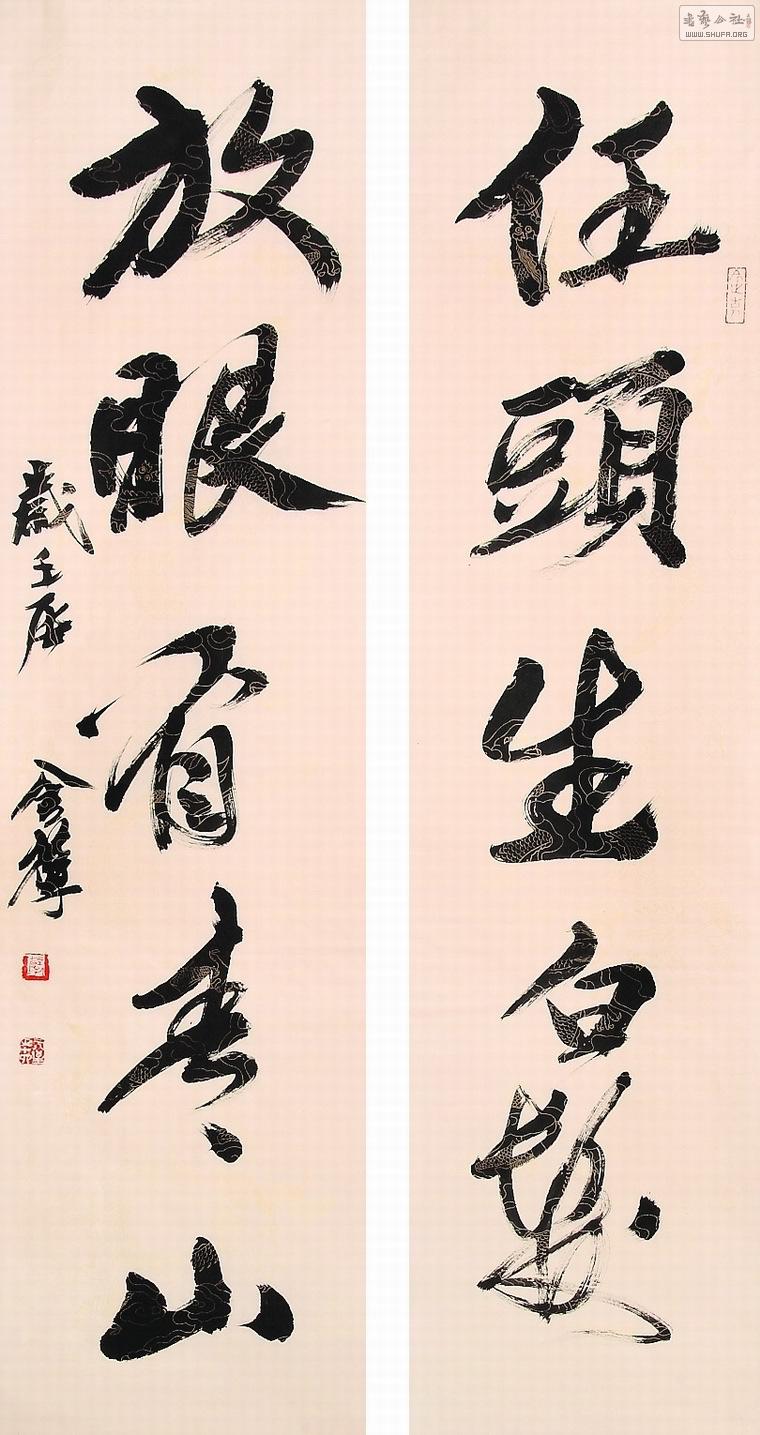 任頭生白髮
放眼看青山
歲壬辰
金輝
書藝公社
WWW.SHUFA.ORG